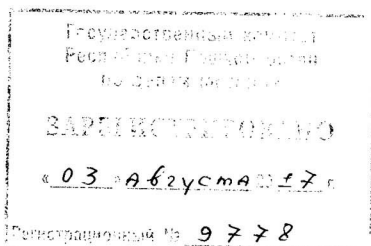 Государственный комитет
Республики Башкортостан
по делам юстиции
ЗАРЕГИСТРИРОВАНО
« 03 » Августа 2017 г.
Регистрационный № 9778